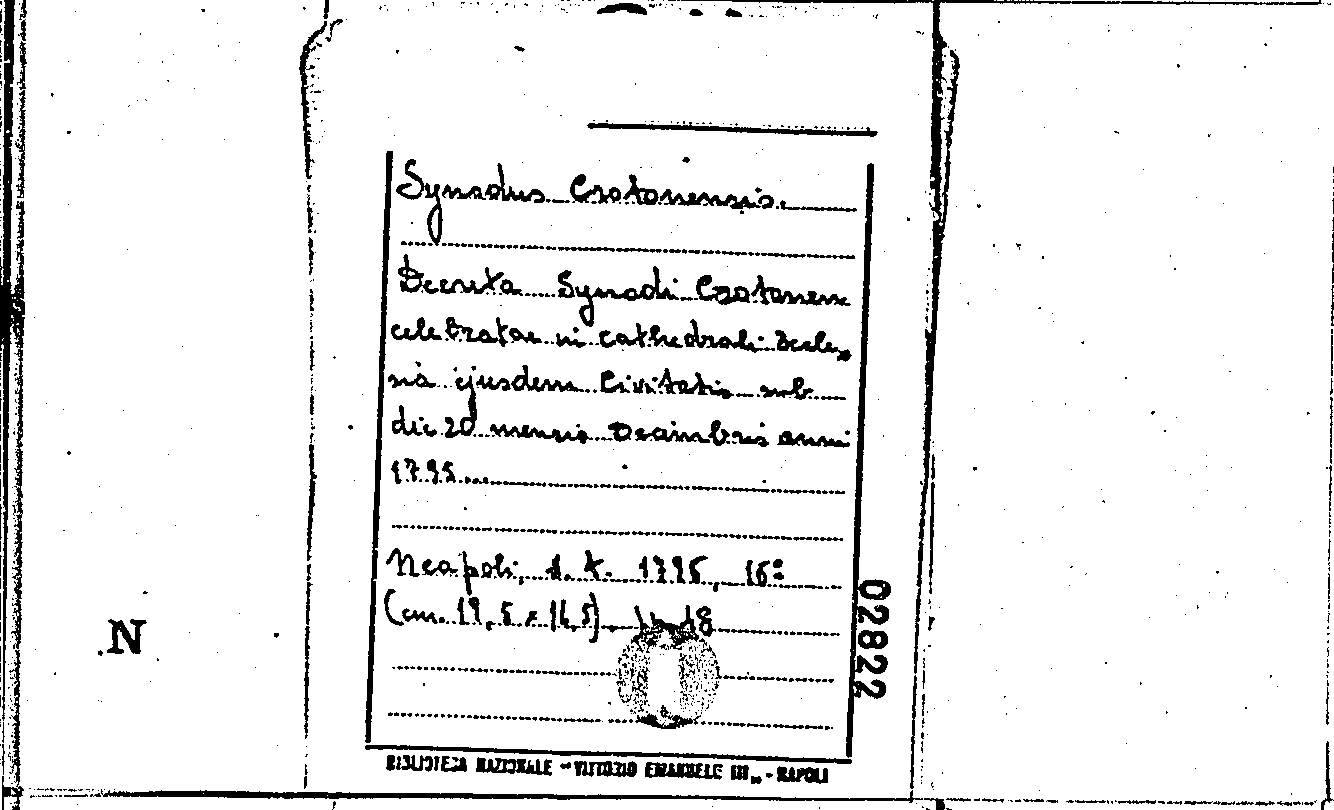 Synodus Crotonensis.
Decreta Synodi Crotonen
celebratae in cathedrali Eccle,
sia ejusdem Civitatis sub
die 20 mensis Decembris anni
1795...
Neapoli, s. t. 1796, 16º
(cm. 19,5 x 14,5). 18
02822
N
BIBLIOTECA NAZIONALE "VITTORIO EMANUELE III" - NAPOLI